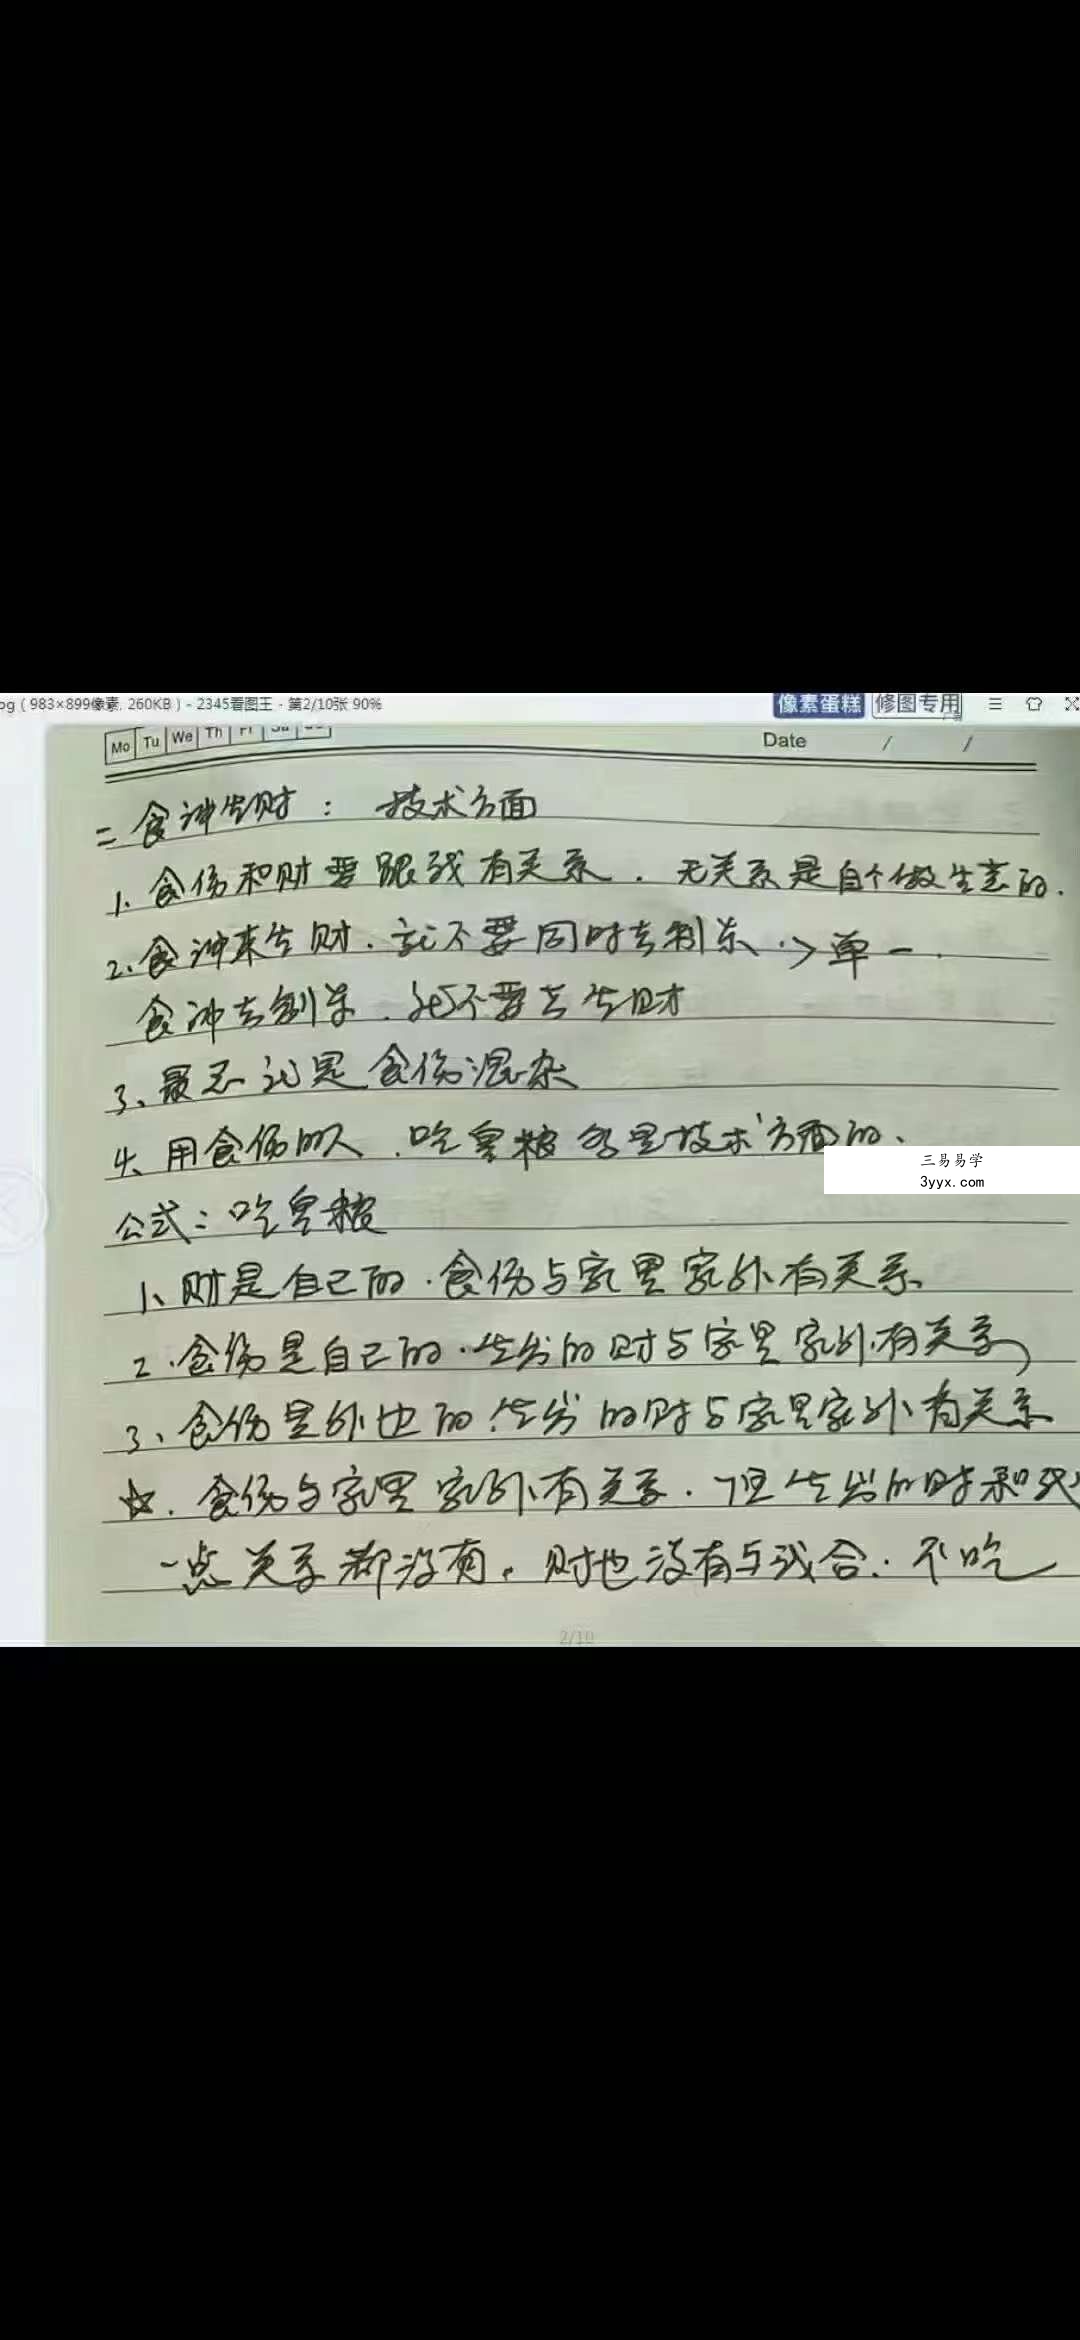 og ( 983×899像素, 260KB ) - 2345看图王 - 第2/10张 90%
像素蛋糕 修图专用
Mo Tu We Th Fr Sa Su Date / /
二 食神生财： 技术方面
1、食伤和财要跟我有关系．无关系是自个做生意的．
2、食神来生财．就不要同时去制杀．> 单一．
食神去制杀．就不要去生财
3、最忌就是食伤混杂
4、用食伤的人．吃皇粮多是技术方面的、
三易易学
3yyx.com
公式：吃皇粮
1、财是自己的．食伤与家里家外有关系
2．食伤是自己的．生出的财与家里家外有关系
3、食伤是外边的．生出的财与家里家外有关系
☆．食伤与家里家外有关系．但生出的财和我
一点关系都没有。财也没有与我合．不吃
2/10